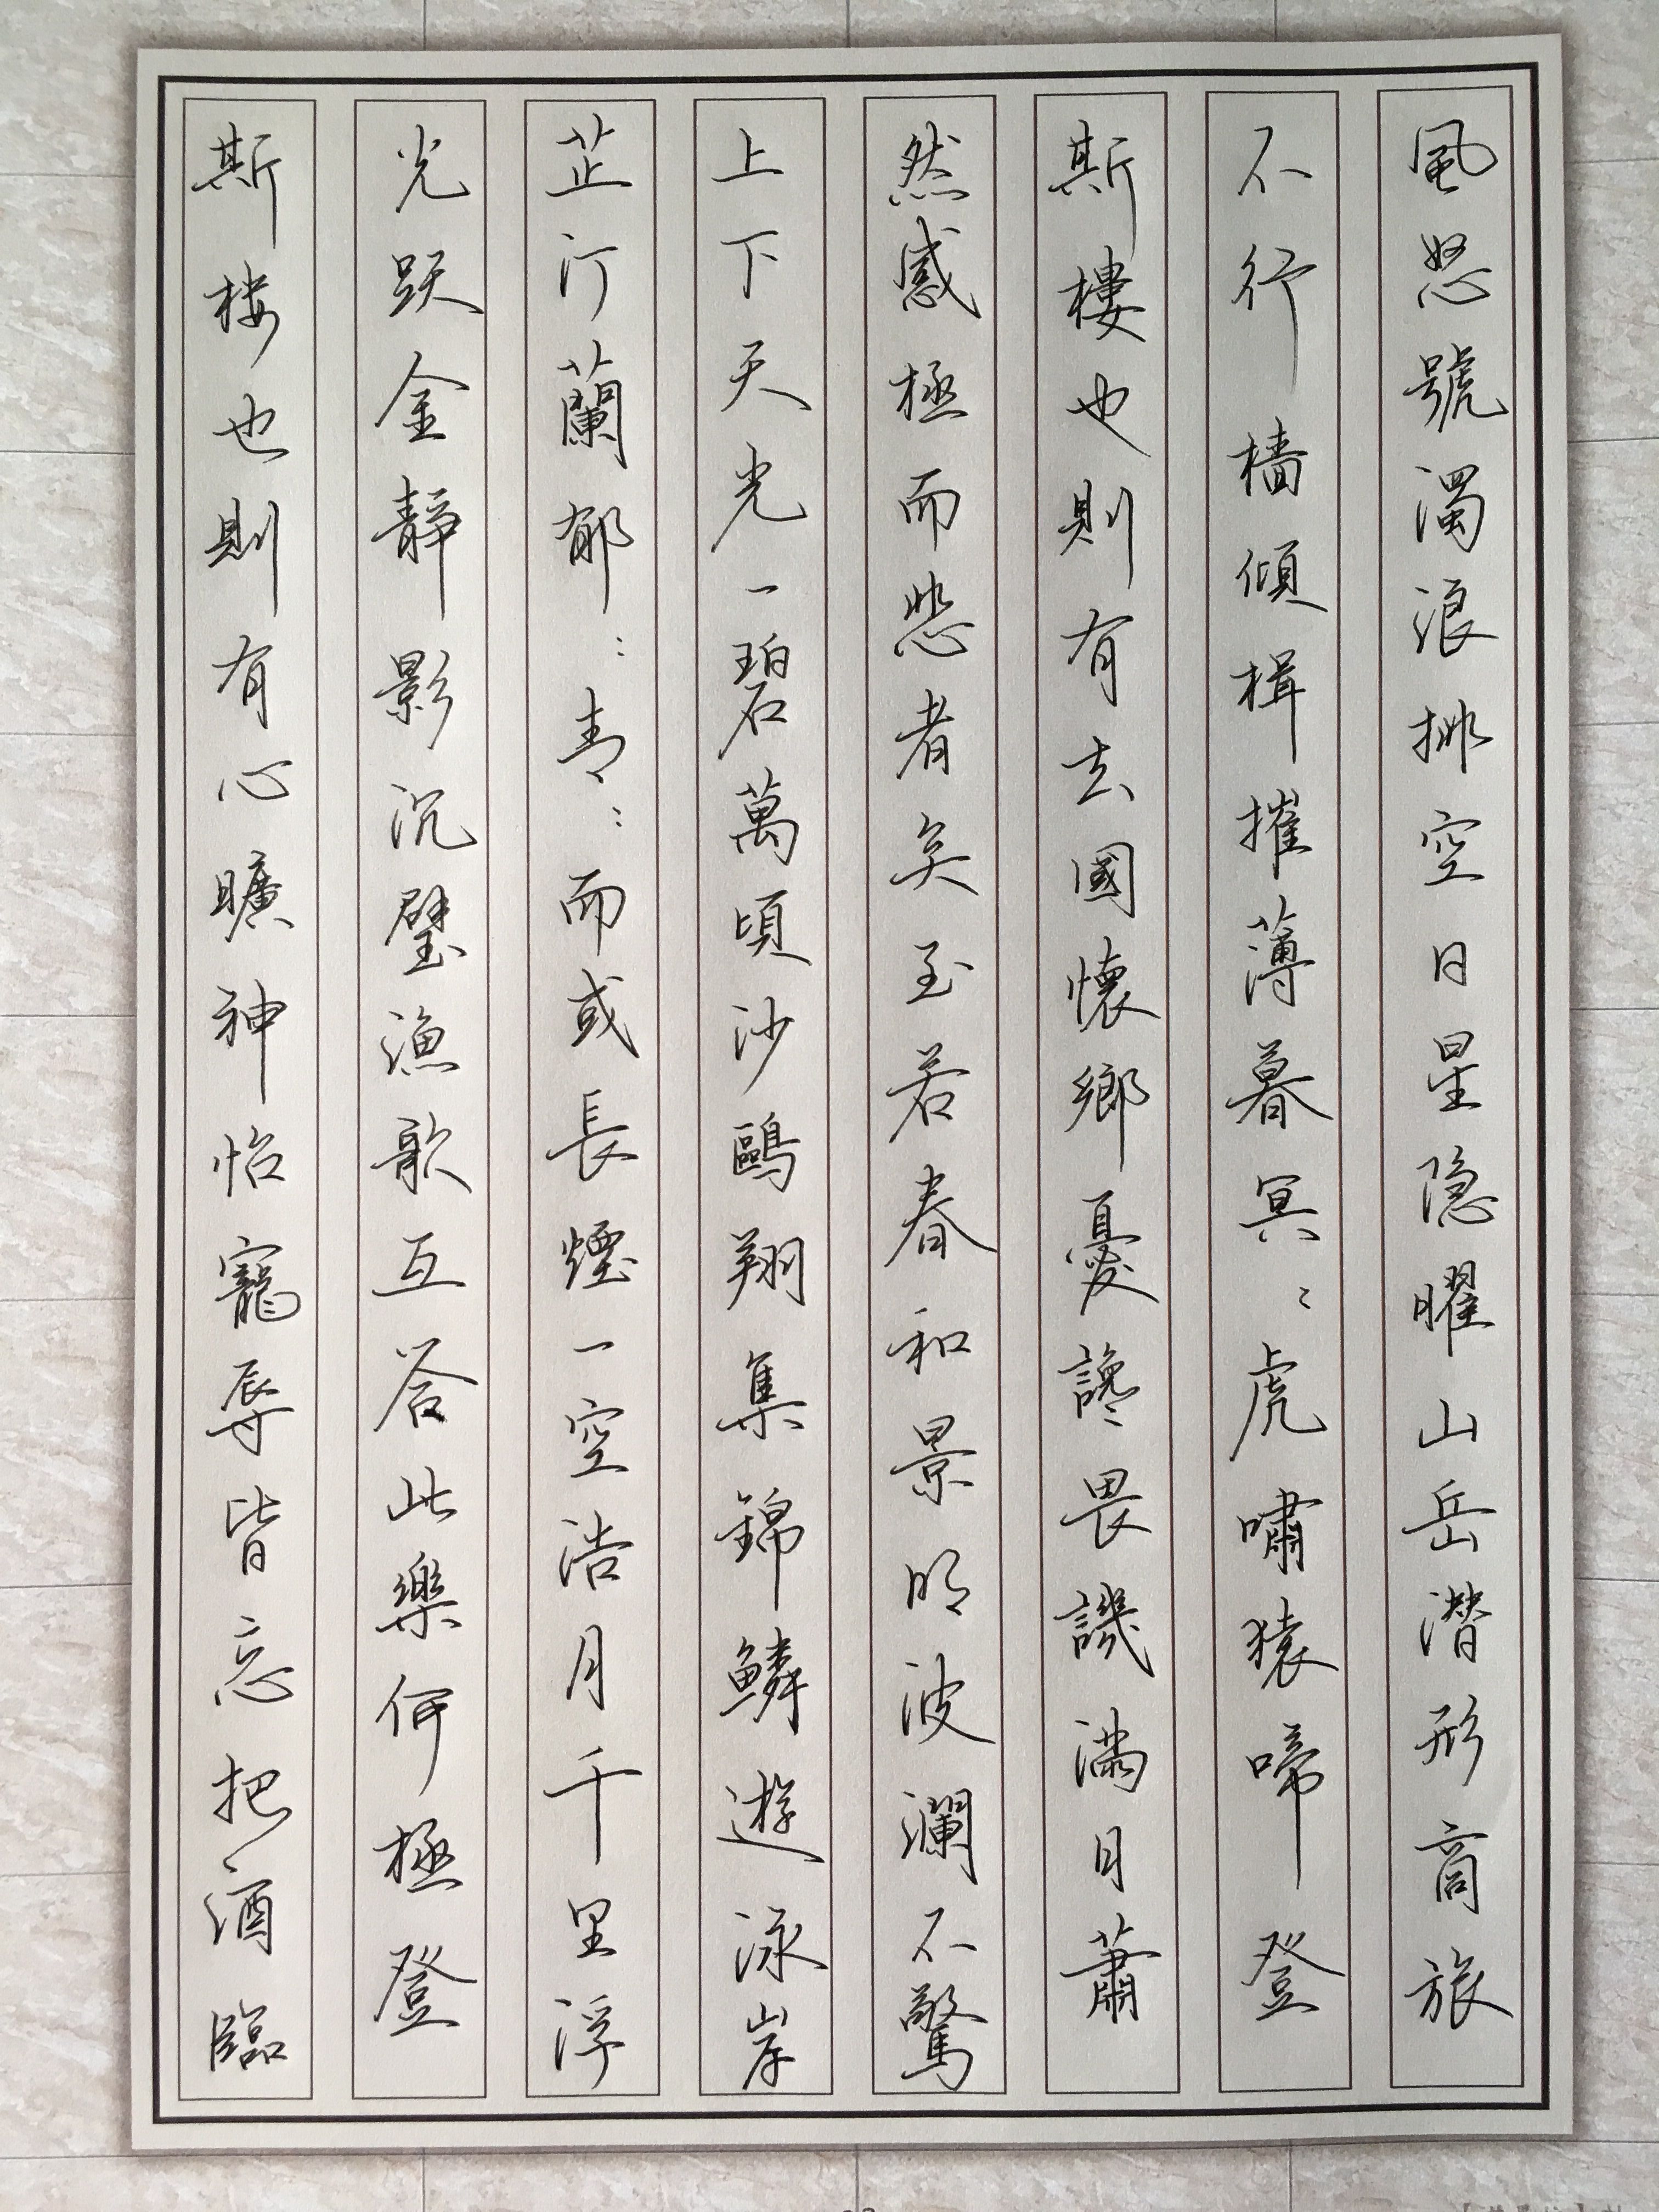 風怒號濁浪排空日星隐曜山岳潛形商旅
不行檣傾楫摧薄暮冥〻虎嘯猿啼登
斯樓也則有去國懷鄉憂讒畏譏滿目蕭
然感極而悲者矣至若春和景明波瀾不驚
上下天光一碧萬頃沙鷗翔集錦鱗遊泳岸
芷汀蘭郁〻青〻而或長煙一空浩月千里浮
光跃金靜影沉璧漁歌互答此樂何極登
斯楼也則有心曠神怡寵辱皆忘把酒臨